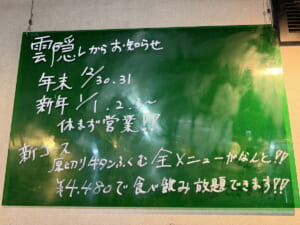 雲隠しからお知らせ
年末 12/30.31
新年 1/1.2.3~
休まず営業!!
新コース
厚切り牛タンふくむ全メニューがなんと!!
¥4,480で食べ飲み放題できます!!